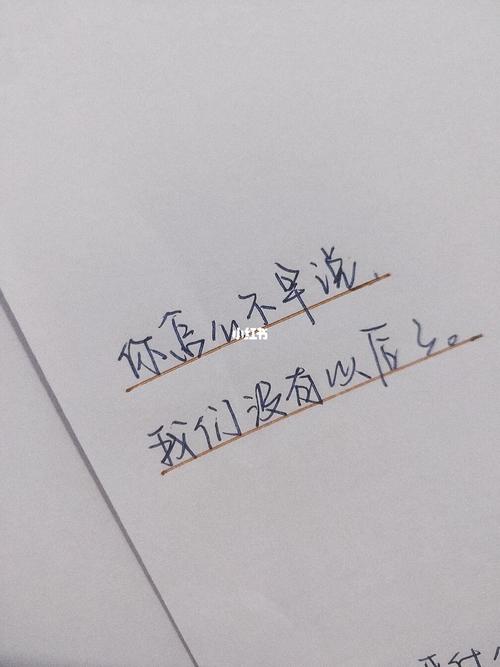 你怎么不早说,
我们没有以后了。
小红书